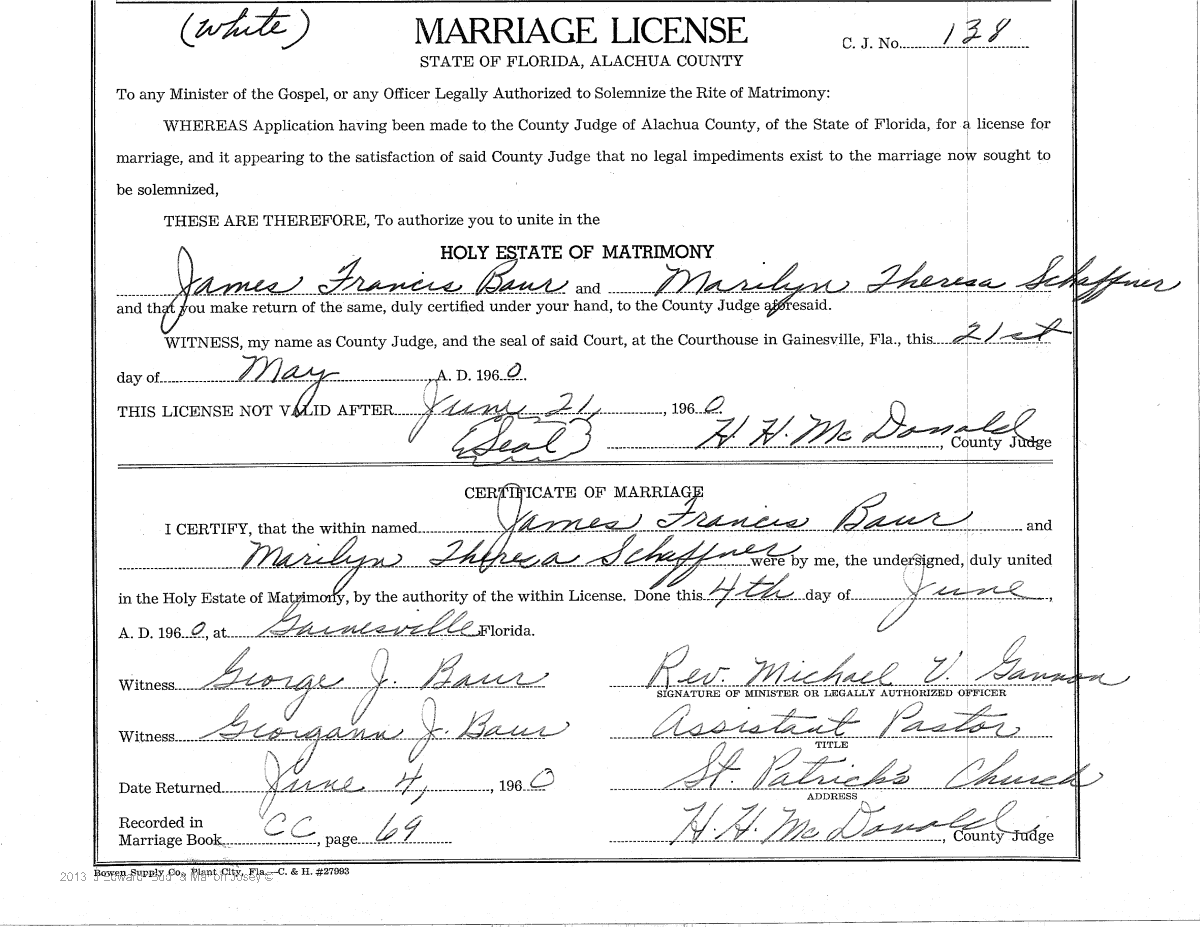 (White) MARRIAGE LICENSE C. J. No. 138
STATE OF FLORIDA, ALACHUA COUNTY
To any Minister of the Gospel, or any Officer Legally Authorized to Solemnize the Rite of Matrimony:
WHEREAS Application having been made to the County Judge of Alachua County, of the State of Florida, for a license for
marriage, and it appearing to the satisfaction of said County Judge that no legal impediments exist to the marriage now sought to
be solemnized,
THESE ARE THEREFORE, To authorize you to unite in the
HOLY ESTATE OF MATRIMONY
James Francis Baur and Marilyn Theresa Schaffner
and that you make return of the same, duly certified under your hand, to the County Judge aforesaid.
WITNESS, my name as County Judge, and the seal of said Court, at the Courthouse in Gainesville, Fla., this 21st
day of May, A. D. 1960.
THIS LICENSE NOT VALID AFTER June 21, 1960.
(Seal) H. H. McDonald, County Judge
CERTIFICATE OF MARRIAGE
I CERTIFY, that the within named James Francis Baur and
Marilyn Theresa Schaffner were by me, the undersigned, duly united
in the Holy Estate of Matrimony, by the authority of the within License. Done this 4th day of June,
A. D. 1960, at Gainesville Florida.
Witness George J. Baur Rev. Michael V. Gannon
SIGNATURE OF MINISTER OR LEGALLY AUTHORIZED OFFICER
Witness Georgann J. Baur Assistant Pastor
TITLE
Date Returned June 4, 1960 St. Patrick's Church
ADDRESS
Recorded in
Marriage Book CC, page 69 H. H. McDonald, County Judge
Bowen Supply Co., Plant City, Fla.—C. & H. #27993
2013 J Edward